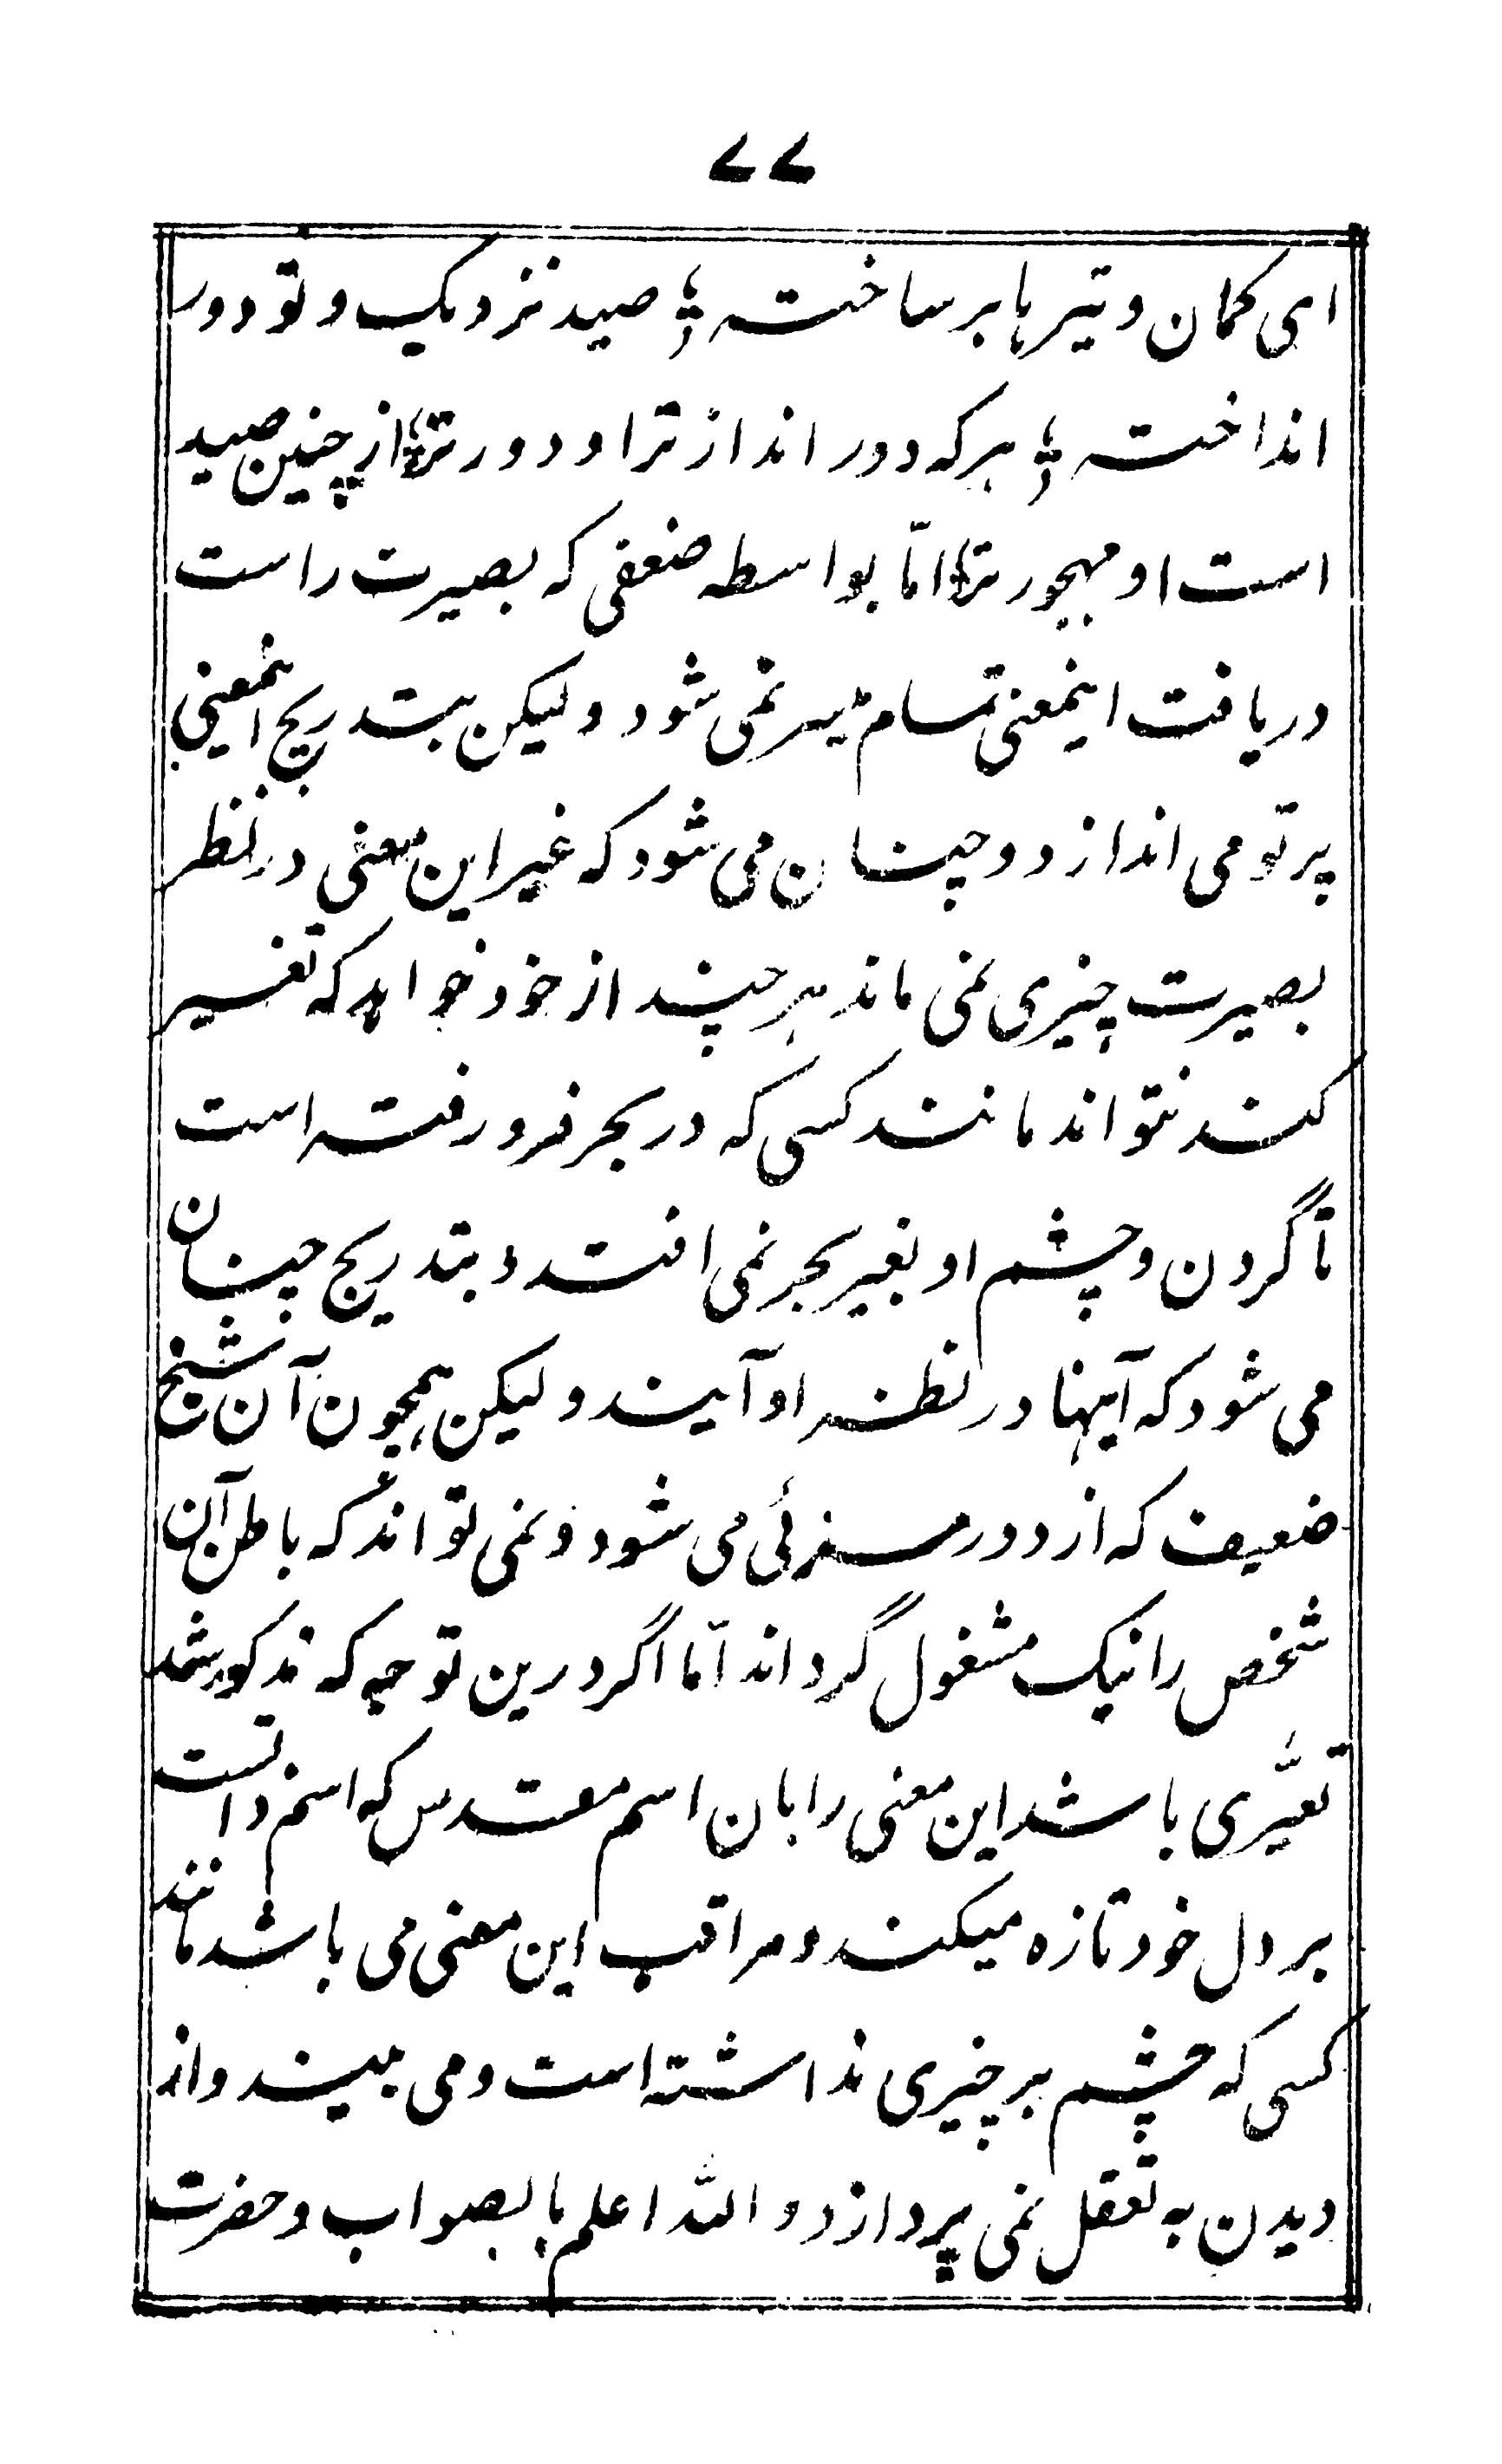 ۷۷
ای کمان و تیرها بر ساخته ؛ صید نزدیک و تو دور
انداخته ؛ هرکه دور انداز تر او دور تر ؛ از چنین صید
است او مهجور تر ؛ امّا بواسطه ضعفی که بصیرت راست
دریافت اینمعنی تمام میسر نمی شود ولیکن بتدریج اینمعنی
پرتو می اندازد و چنان می شود که غیر این معنی در نظر
بصیرت چیزی نمی ماند هر چند از خود خواهد که تفسیر
کند نتواند مانند کسی که در بحر فرو رفته است
تا گردن و چشم او بغیر بحر نمی افتد و بتدریج چنان
می شود که آینها در نظر او آیند ولیکن همچون آن شبح
ضعیف که از دور مرئی می شود و نمی تواند که باطن آن
شخص را نیک مشغول گرداند امّا اگر درین توجه که مذکور شد
تعسّری باشد این معنی را بان اسم مقدس که اسم ذاتست
بر دل خود تازه میکند و مراقب این معنی می باشد مانند
کسی که چشم بر چیزی نداشته است و می بیند و از
دیدن به تعقل نمی پردازد و الله اعلم بالصواب و حضرت